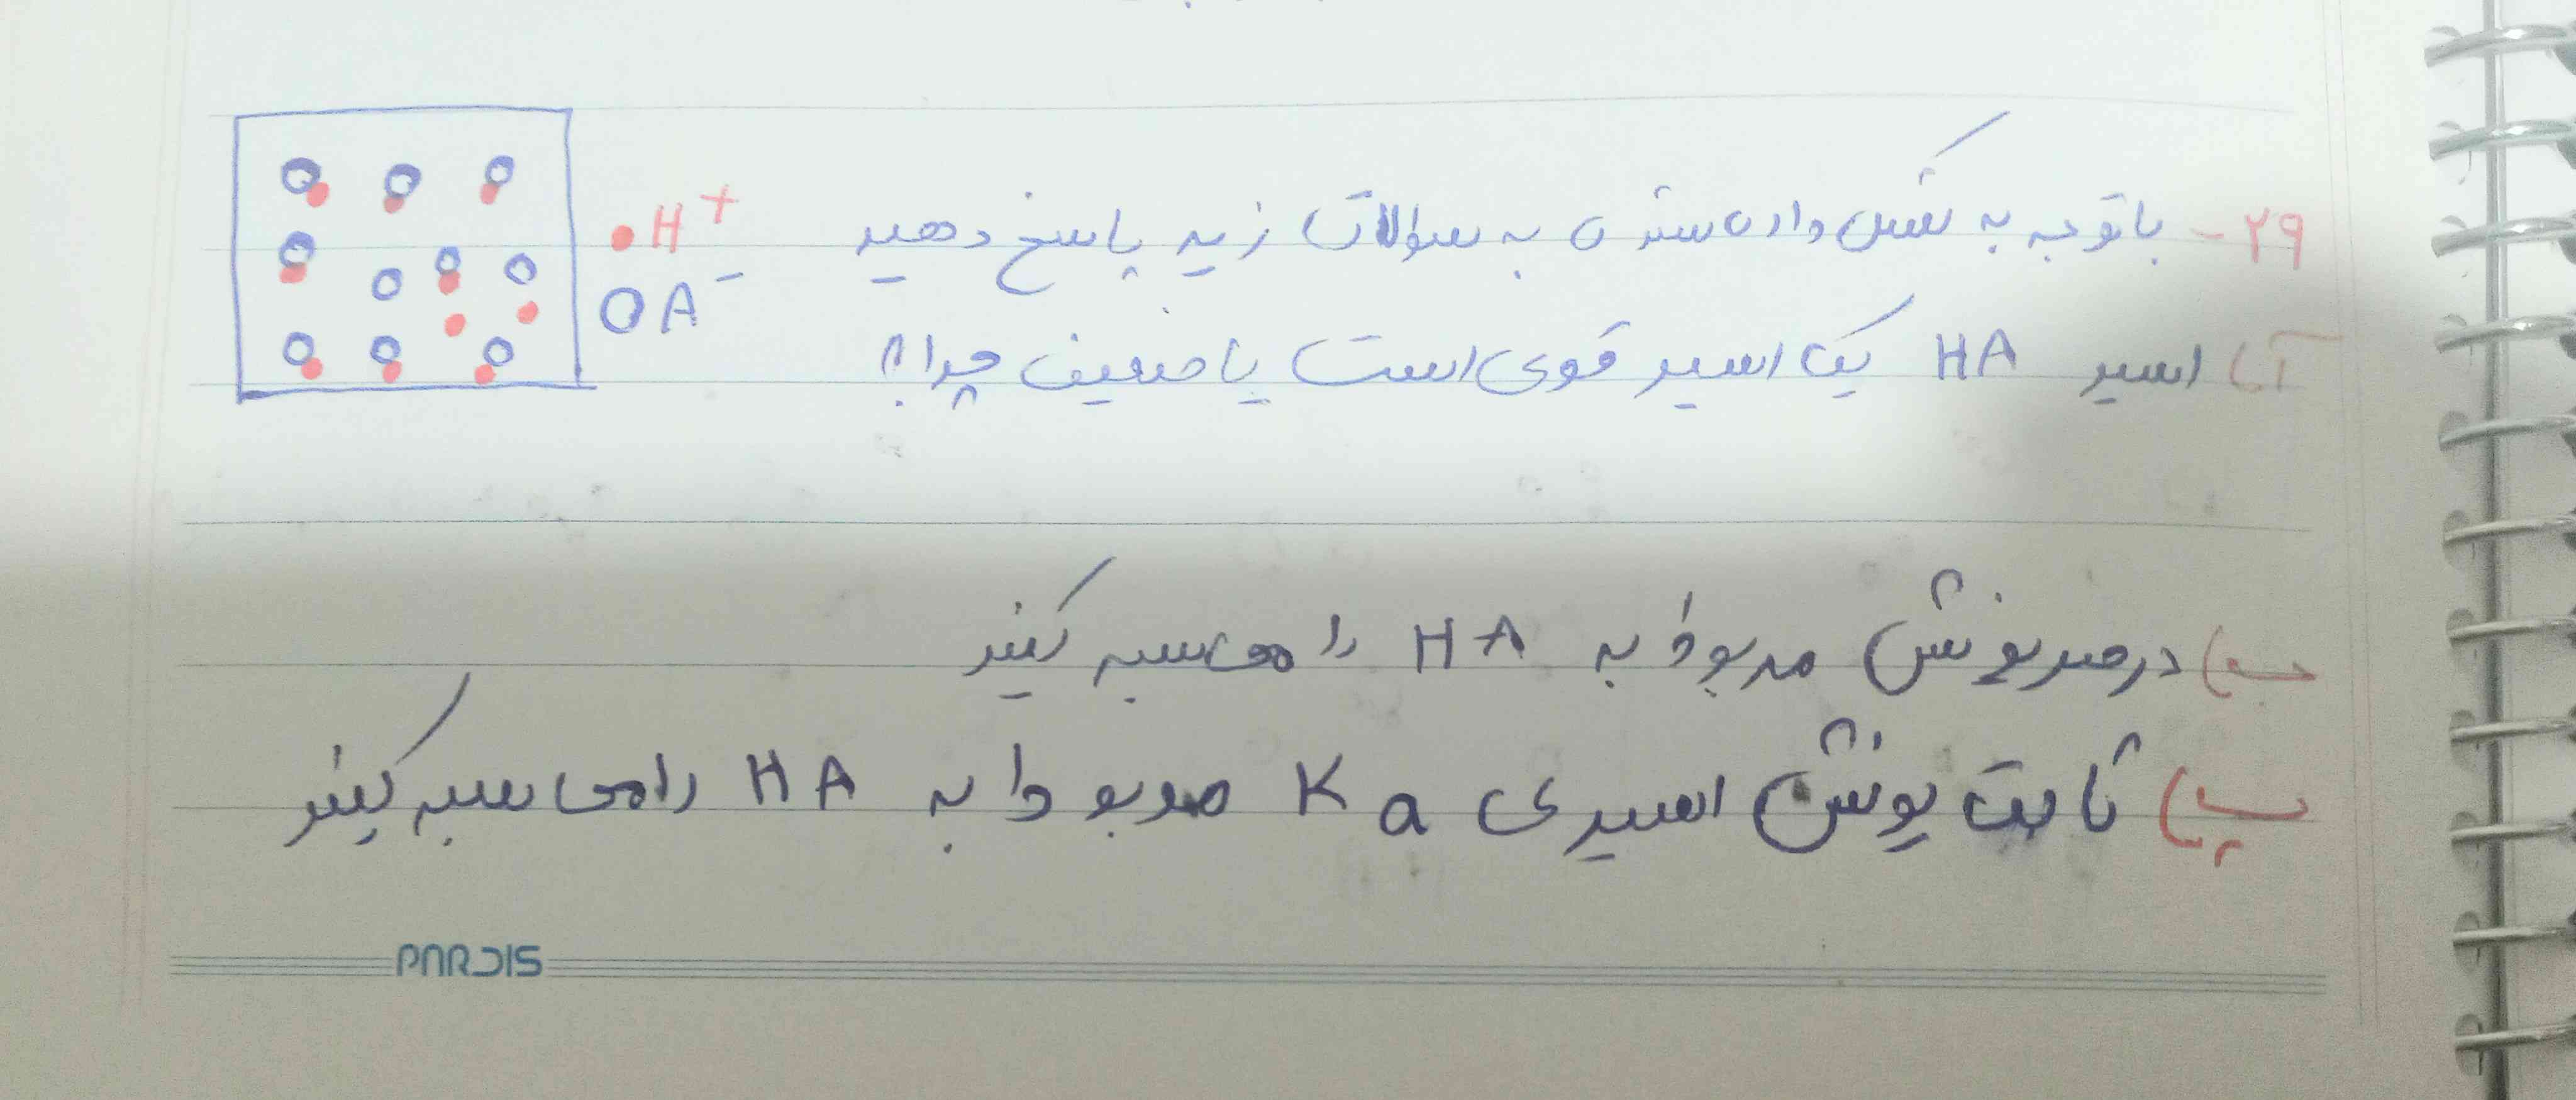 ۲۹- با توجه به شکل داده شده به سوالات زیر پاسخ دهید
• H+
O A-
آ) اسید HA یک اسید قوی است یا ضعیف چرا؟
ب) درصد یونش مربوط به HA را محاسبه کنید
پ) ثابت یونش اسیدی Ka مربوط به HA را محاسبه کنید
PARDIS